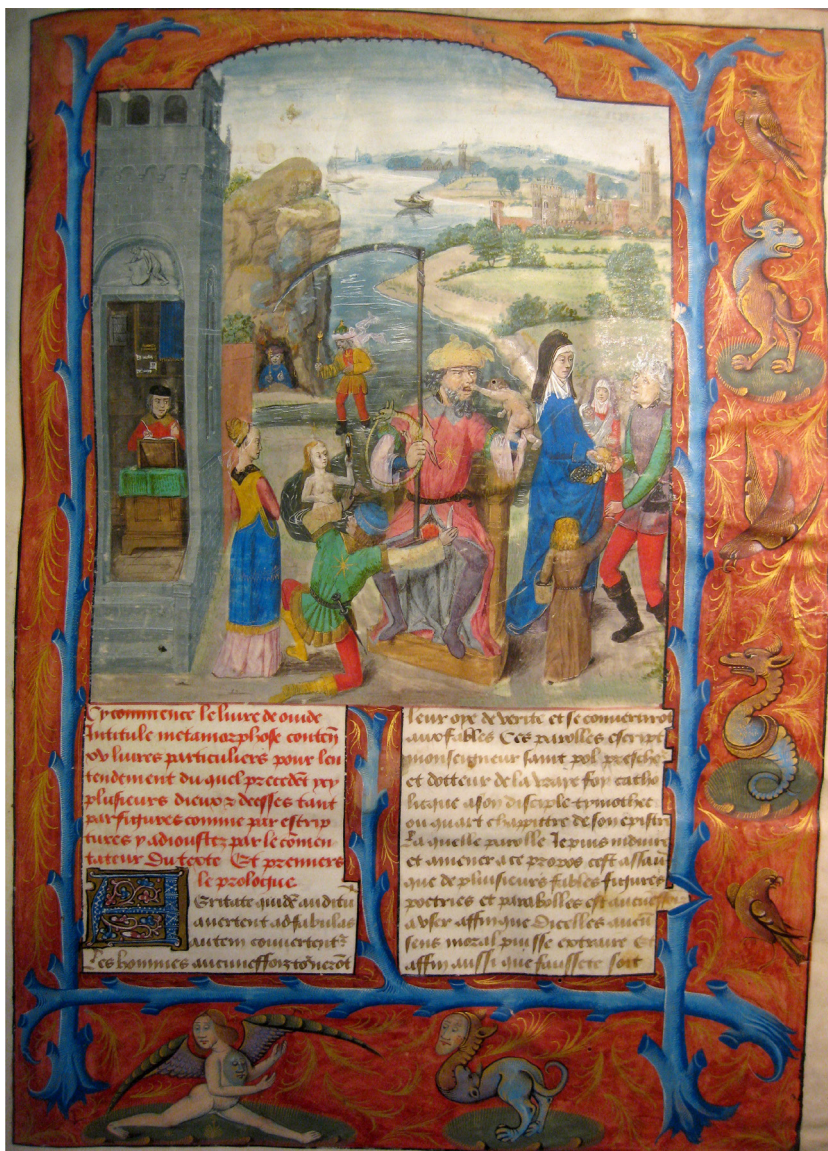 Cy commence le livre de ovide
Intitule metamorphose conten̄
xv livres particuliers pour len
tendement du quel precedēt ycy
plusieurs dieux ⁊ deesses tant
par figures comme par escrip
tures y adioustez par le cōmen
tateur Du texte Et premiers
le prologue
A Veritate quidē auditū
avertent ad fabulas
autem convertentᷣ
Les hommes aucuneffoiz tōnerōt
leur oye de verite et se convertirōt
aux fables Ces parolles escript
monseigneur saint pol prescheꝛ
et docteur de la vraye foy catho
licque a son disciple tymothee
ou quart chappitre de son epistre
La quelle parolle Je puis induire
et amener a ce propos cest assavꝛ
que de plusieurs fables figures
poetries et parabolles est aucuneffoiz
a user affin que dicelles aucū
sens moral puisse extraire Et
affin aussi que faussete soit